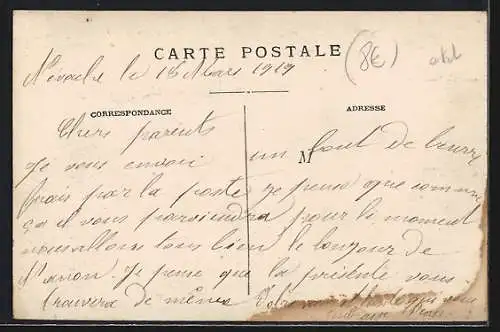 CARTE POSTALE
(8€)
Névache le 18 Mars 1919
CORRESPONDANCE
ADRESSE
M
Chers parents
Je vous envoi un bout de beurre
frais par la poste je pense que comme
ça il vous parviendra pour le moment
nous allons tous bien le bonjour de
Je pense que la présente vous
trouvera de même Votre